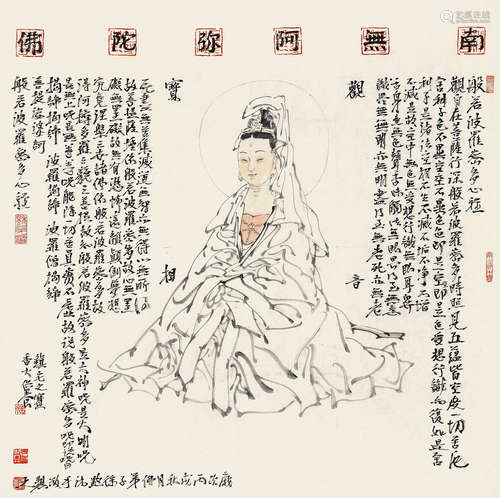 南無阿弥陀佛
般若波羅蜜多心經
觀自在菩薩行深般若波羅蜜多時照見五蘊皆空度一切苦厄
舍利子色不異空空不異色色即是空空即是色受想行識亦復如是舍
利子是諸法空相不生不滅不垢不淨不增
不減是故空中無色無受想行識無眼耳鼻
舌身意無色聲香味觸法無眼界乃至無意
識界無無明亦無無明盡乃至無老死亦無老
觀音
寶相
死盡無苦集滅道無智亦無得以無所得
故菩提薩埵依般若波羅蜜多故心無罣
礙無罣礙故無有恐怖遠離顛倒夢想
究竟涅槃三世諸佛依般若波羅蜜多故
得阿耨多羅三藐三菩提故知般若波羅蜜多是大神咒是大明咒
是無上咒是無等等咒能除一切苦真實不虛故說般若波羅蜜多咒即說咒曰
揭諦揭諦 波羅揭諦 波羅僧揭諦
菩提薩婆訶
般若波羅蜜多心經
歲次丙戌秋月佛弟子徐沐手敬